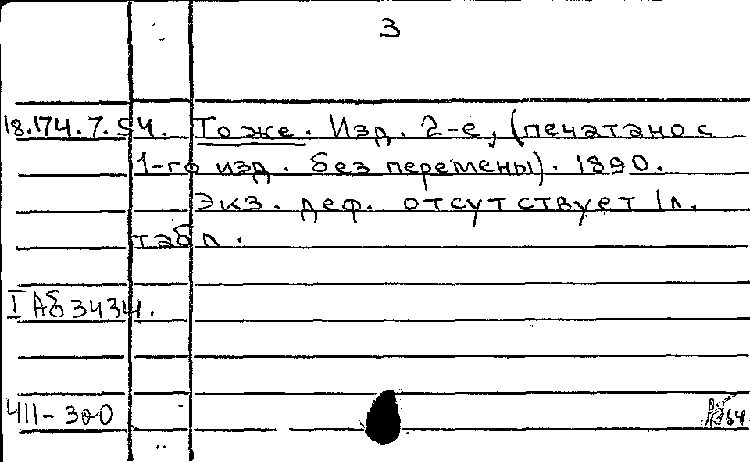 3
18.174.7.54. То же. Изд. 2-е, (печатано с
1-го изд. без перемены). 1890.
Экз. деф. отсутствует 1л.
табл.
I Аб 3434.
411-300